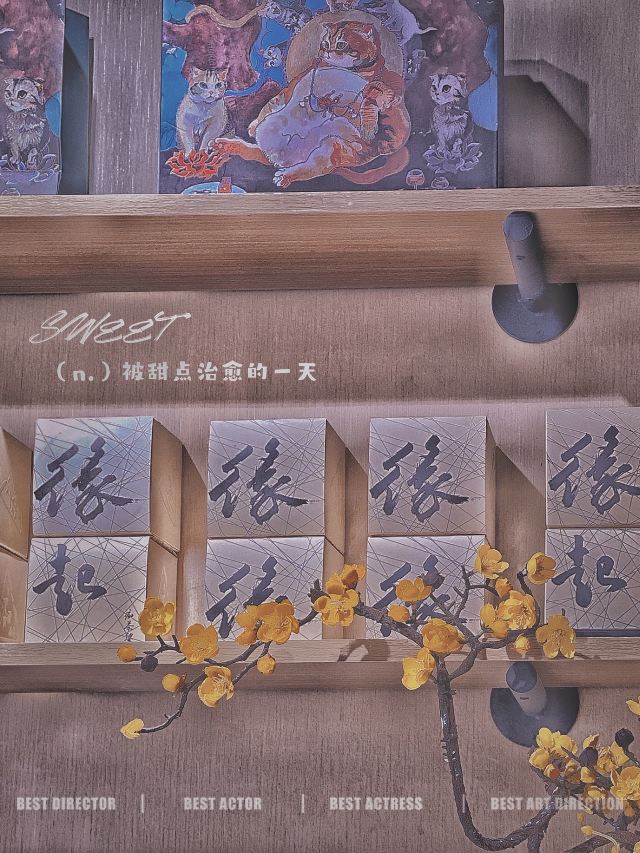 SWEET
（n.）被甜点治愈的一天
缘 缘 缘 缘
起 缘 缘 起
BEST DIRECTOR | BEST ACTOR | BEST ACTRESS BEST ART DIRECTION